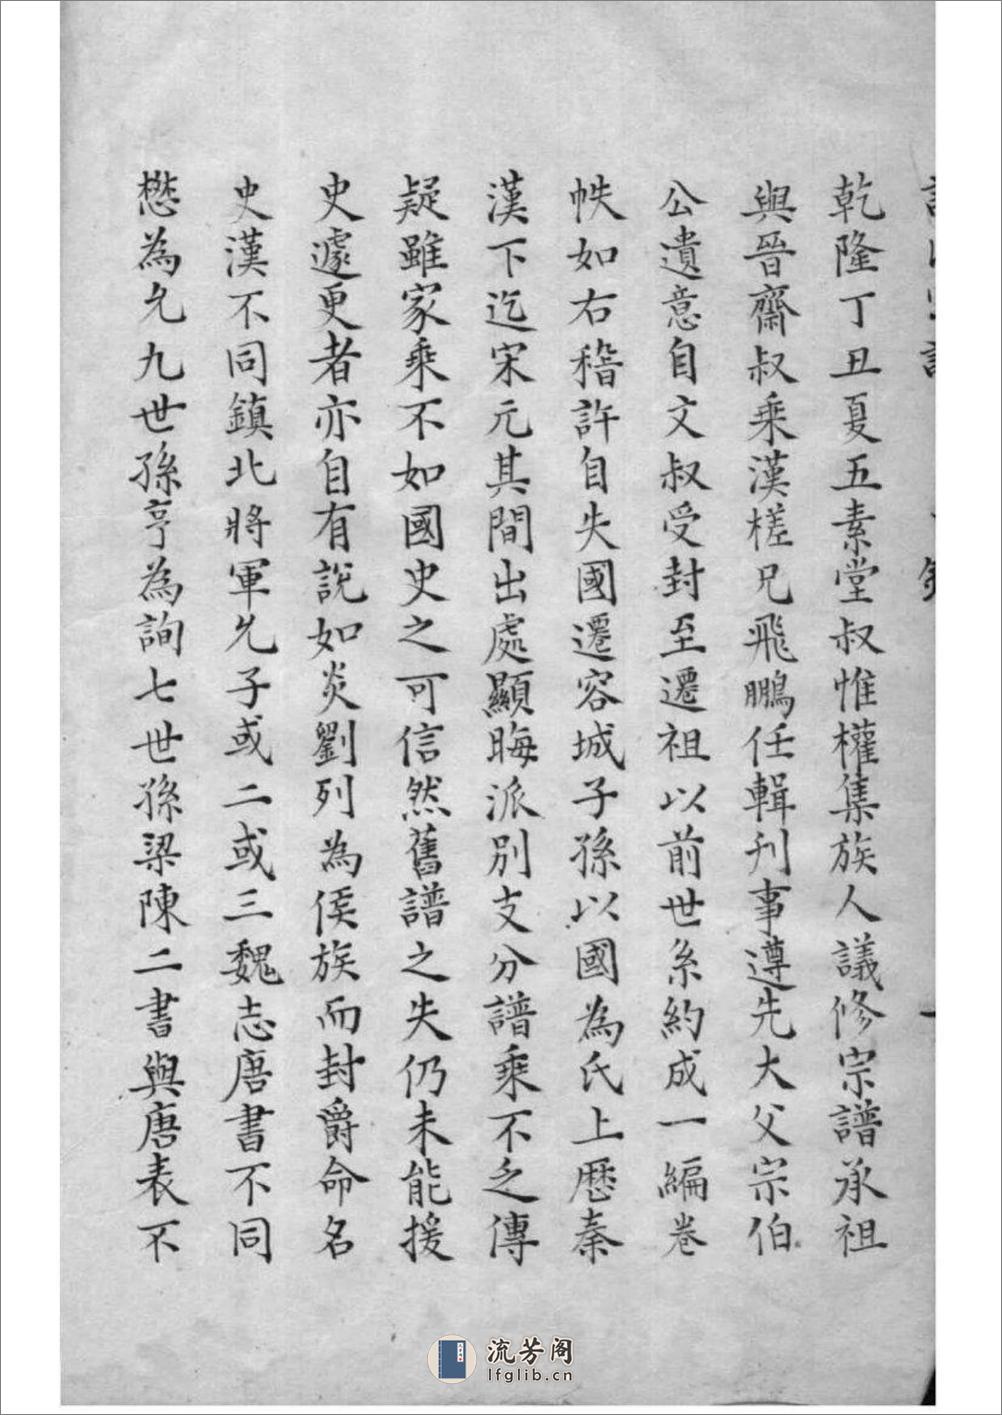 乾隆丁丑夏五素堂叔惟權集族人議修宗譜承祖
與晉齋叔乘漢槎兄飛鵬任輯刋事遵先大父宗伯
公遺意自文叔受封至遷祖以前世系約成一編卷
帙如右稽許自失國遷容城子孫以國為氏上歷秦
漢下迄宋元其間出處顯晦派別支分譜乘不乏傳
疑雖家乘不如國史之可信然舊譜之失仍未能援
史遽更者亦自有說如炎劉列為侯族而封爵命名
史漢不同鎮北將軍允子或二或三魏志唐書不同
懋為允九世孫亨為詢七世孫梁陳二書與唐表不
流芳阁
lfglib.cn